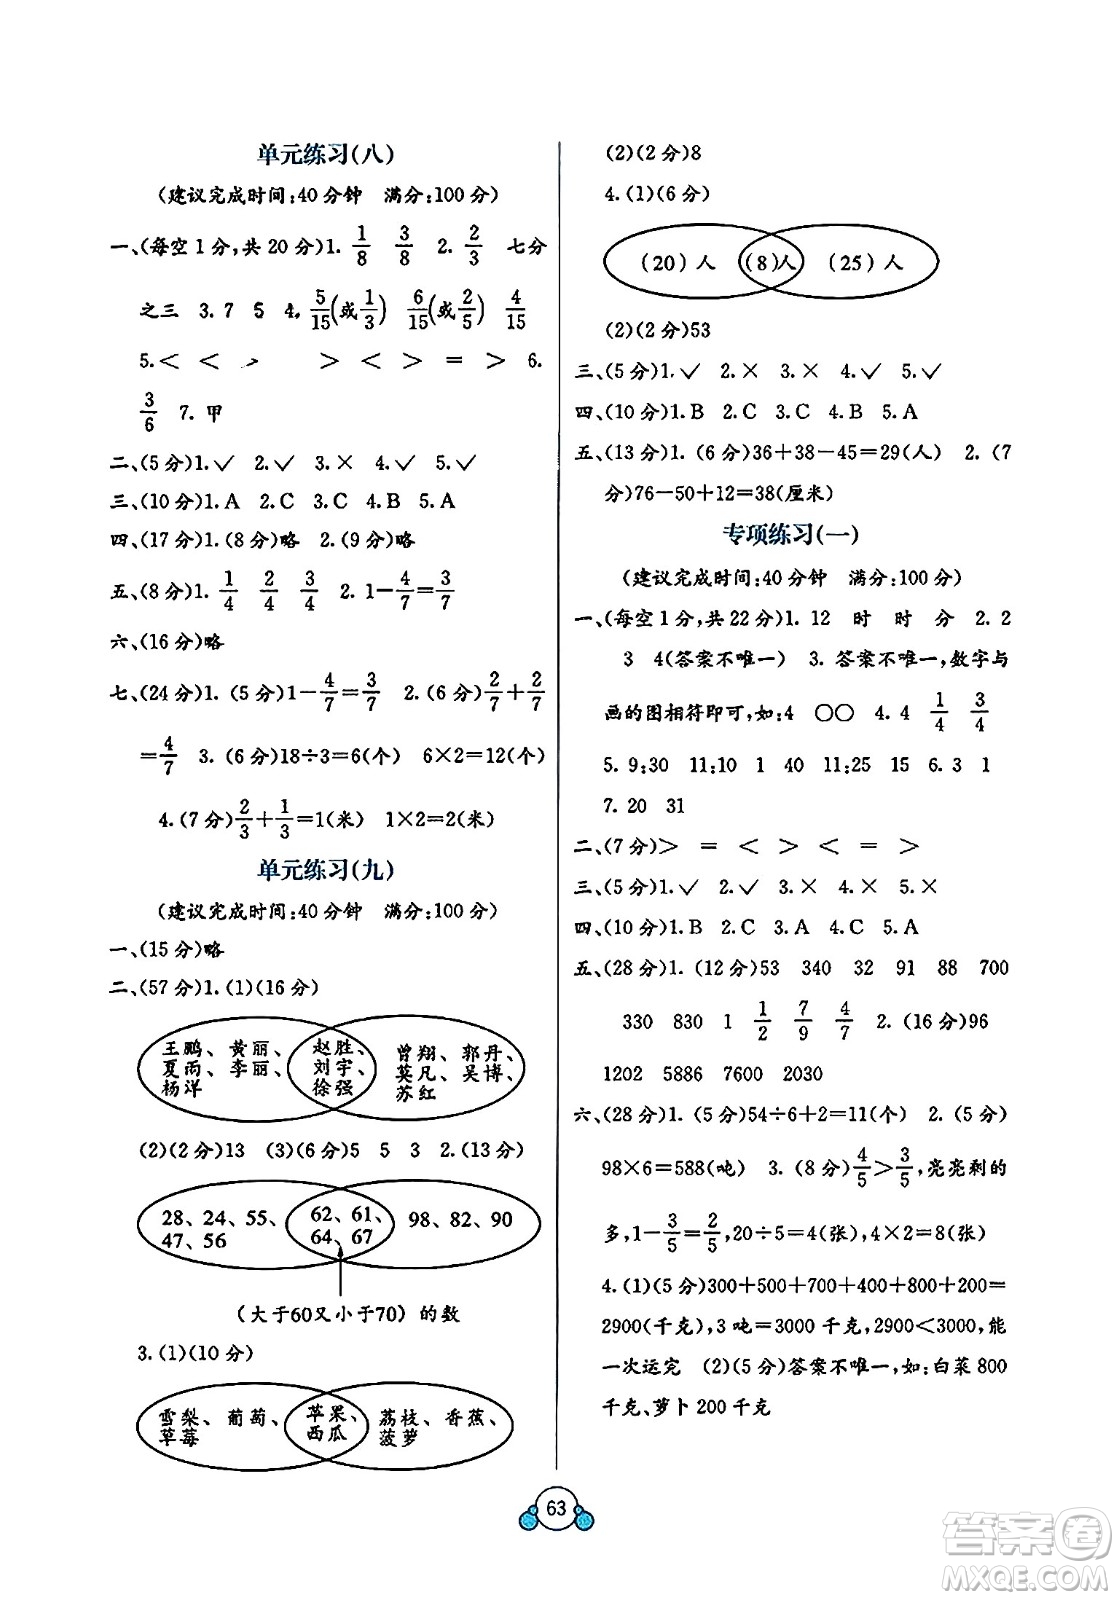 单元练习(八)
(建议完成时间:40分钟 满分:100分)
一、(每空1分,共20分)1. 1/8 3/8 2. 2/3 七分
之三 3.7 5 4. 5/15(或1/3) 6/15(或2/5) 4/15
5.< < > < > = > 6.
3/6 7. 甲
二、(5分)1.✓ 2.✓ 3.× 4.✓ 5.✓
三、(10分)1.A 2.C 3.C 4.B 5.C
四、(17分)1.(8分)略 2.(9分)略
五、(8分)1. 1/4 2/4 3/4 2. 1-4/7=3/7
六、(16分)略
七、(24分)1. (5分)1-4/7=3/7 2.(6分)2/7+2/7
=4/7 3. (6分)18÷3=6(个) 6×2=12(个)
4.(7分)2/3+1/3=1(米) 1×2=2(米)
单元练习(九)
(建议完成时间:40分钟 满分:100分)
一、(15分)略
二、(57分)1.(1)(16分)
王鹏、黄丽、 赵胜、 曾翔、郭丹、
夏雨、李丽、 刘宇、 莫凡、吴博、
杨洋 徐强 苏红
(2)(2分)13 (3)(6分)5 5 3 2.(13分)
28、24、55、 62、61、 98、82、90
47、56 64、67
(大于60又小于70)的数
3.(1)(10分)
雪梨、葡萄、 苹果、 荔枝、香蕉、
草莓 西瓜 菠萝
(2)(2分)8
4.(1)(6分)
(20)人 (8)人 (25)人
(2)(2分)53
三、(5分)1.✓ 2.× 3.× 4.✓ 5.✓
四、(10分)1.B 2.C 3.C 4.B 5.A
五、(13分)1. (6分)36+38-45=29(人) 2. (7
分)76-50+12=38(厘米)
专项练习(一)
(建议完成时间:40分钟 满分:100分)
一、(每空1分,共22分)1. 12 时 时 分 2. 2
3 4(答案不唯一) 3. 答案不唯一,数字与
画的图相符即可,如:4 ○○ 4. 4 1/4 3/4
5. 9:30 11:10 1 40 11:25 15 6. 3 1
7. 20 31
二、(7分)> = < > < = >
三、(5分)1.✓ 2.✓ 3.× 4.× 5.×
四、(10分)1.B 2.C 3.A 4.C 5.A
五、(28分)1. (12分)53 340 32 91 88 700
330 830 1 1/2 7/9 4/7 2. (16分)96
1202 5886 7600 2030
六、(28分)1. (5分)54÷6+2=11(个) 2. (5分)
98×6=588(吨) 3. (8分)4/5>3/5,亮亮剩的
多,1-3/5=2/5,20÷5=4(张),4×2=8(张)
4.(1)(5分)300+500+700+400+800+200=
2900(千克),3吨=3000千克,2900<3000,能
一次运完 (2)(5分)答案不唯一,如:白菜800
千克、萝卜200千克
63
答案圈
MXQE.COM